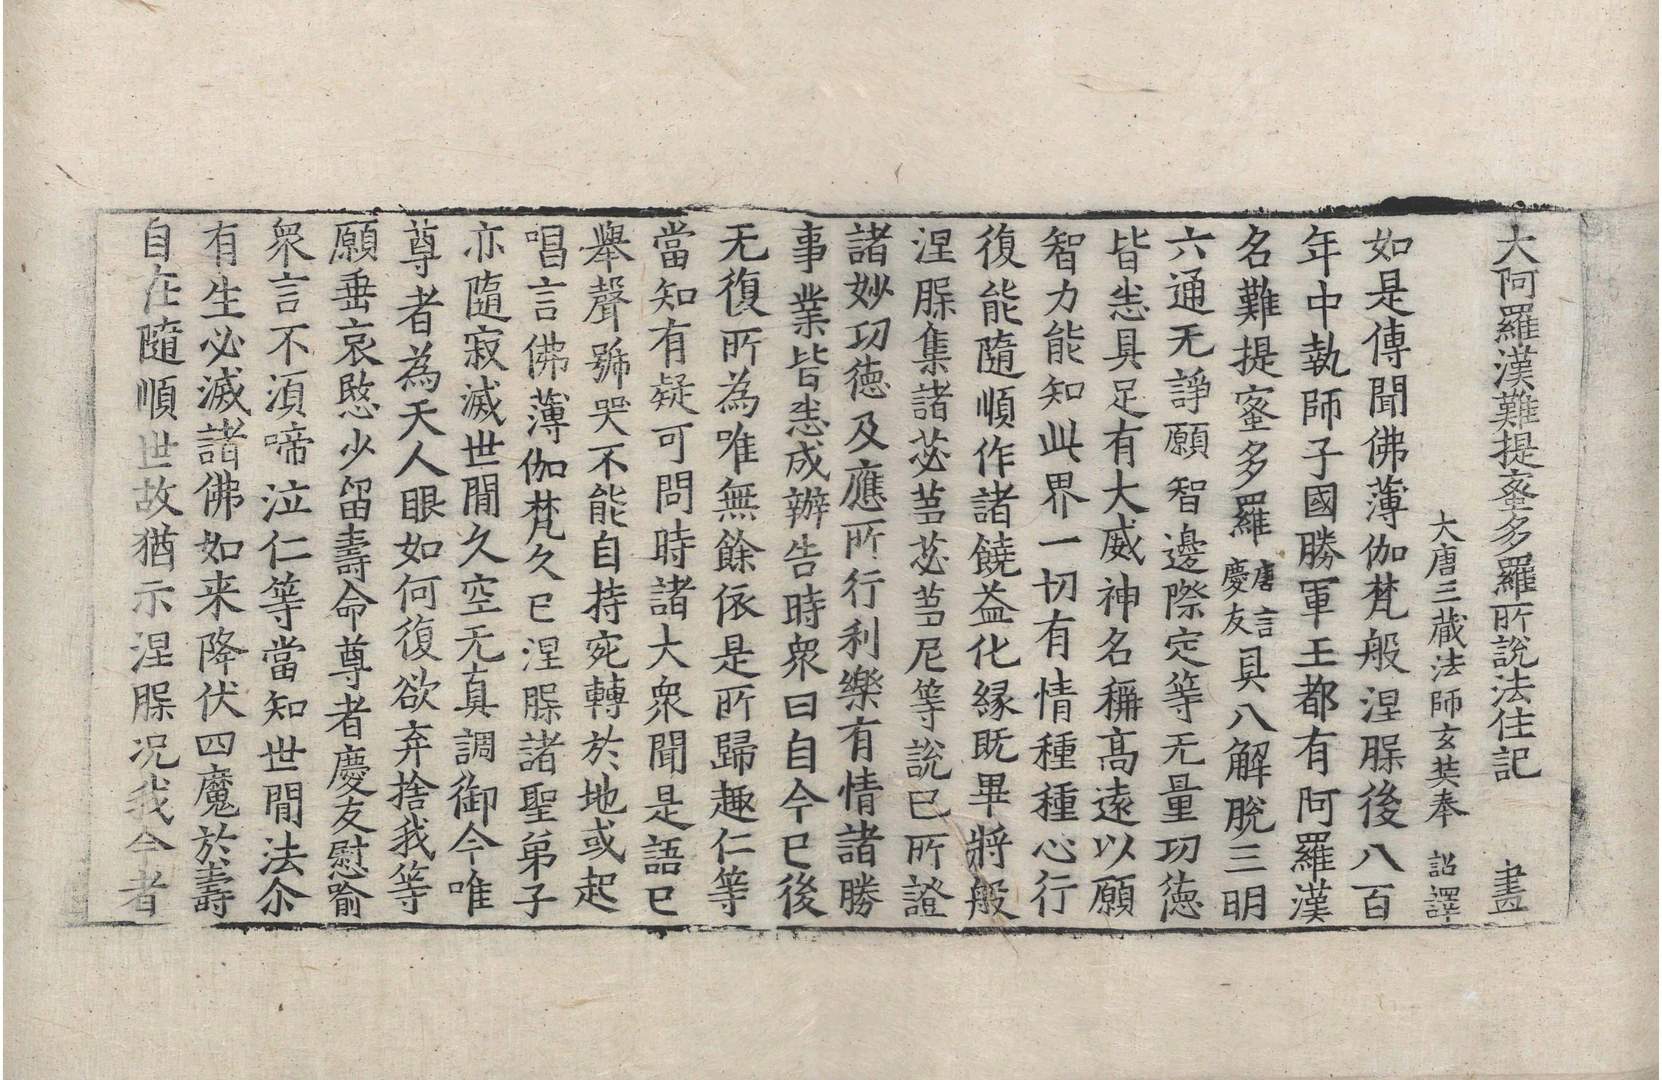 大阿羅漢難提蜜多羅所說法住記 畫
大唐三藏法師玄奘奉 詔譯
如是傳聞佛薄伽梵般涅䏶後八百
年中執師子國勝軍王都有阿羅漢
名難提蜜多羅唐言慶友具八解脫三明
六通无諍願智邊際定等无量功德
皆悉具足有大威神名稱高遠以願
智力能知此界一切有情種種心行
復能隨順作諸饒益化緣既畢將般
涅䏶集諸苾芻苾芻尼等說已所證
諸妙功德及應所行利樂有情諸勝
事業皆悉成辦告時眾曰自今已後
无復所為唯無餘依是所歸趣仁等
當知有疑可問時諸大眾聞是語已
舉聲號哭不能自持宛轉於地或起
唱言佛薄伽梵久已涅䏶諸聖弟子
亦隨寂滅世間久空无真調御今唯
尊者為天人眼如何復欲弃捨我等
願垂哀愍少留壽命尊者慶友慰喻
眾言不湏啼泣仁等當知世間法尒
有生必滅諸佛如来降伏四魔於壽
自在隨順世故猶示涅䏶况我今者